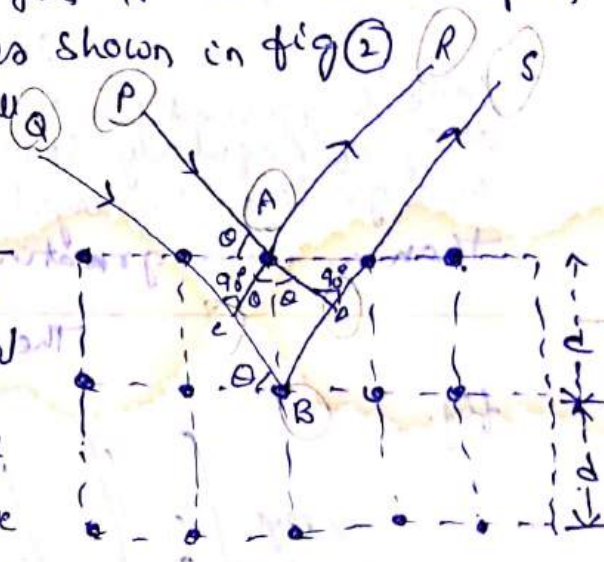 as shown in fig ②
R
S
P
Q
A
θ
90°
θ
θ
90°
c
D
θ
B
d
d